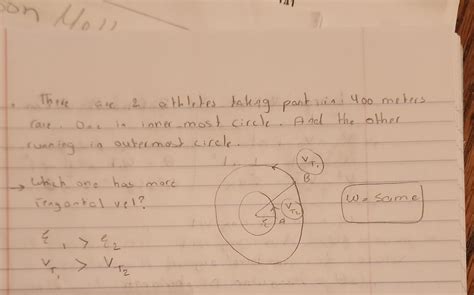 Moll
There are 2 athletes taking part in 400 meters
race. One in inner-most circle. And the other
running in outermost circle.
→ Which one has more
tengantal vel?
VT1
B
VT2
A
r
ω = same
r1 > r2
VT1 > VT2